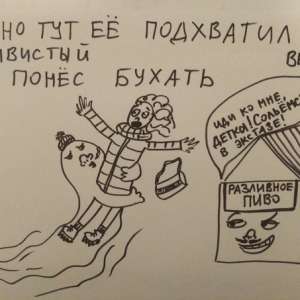 НО ТУТ ЕЁ ПОДХВАТИЛ
ИВИСТЫЙ
ПОНЁС БУХАТЬ
ИДИ КО МНЕ,
ДЕТКА!
В ЭКСТАЗЕ!
РАЗЛИВНОЕ
ПИВО